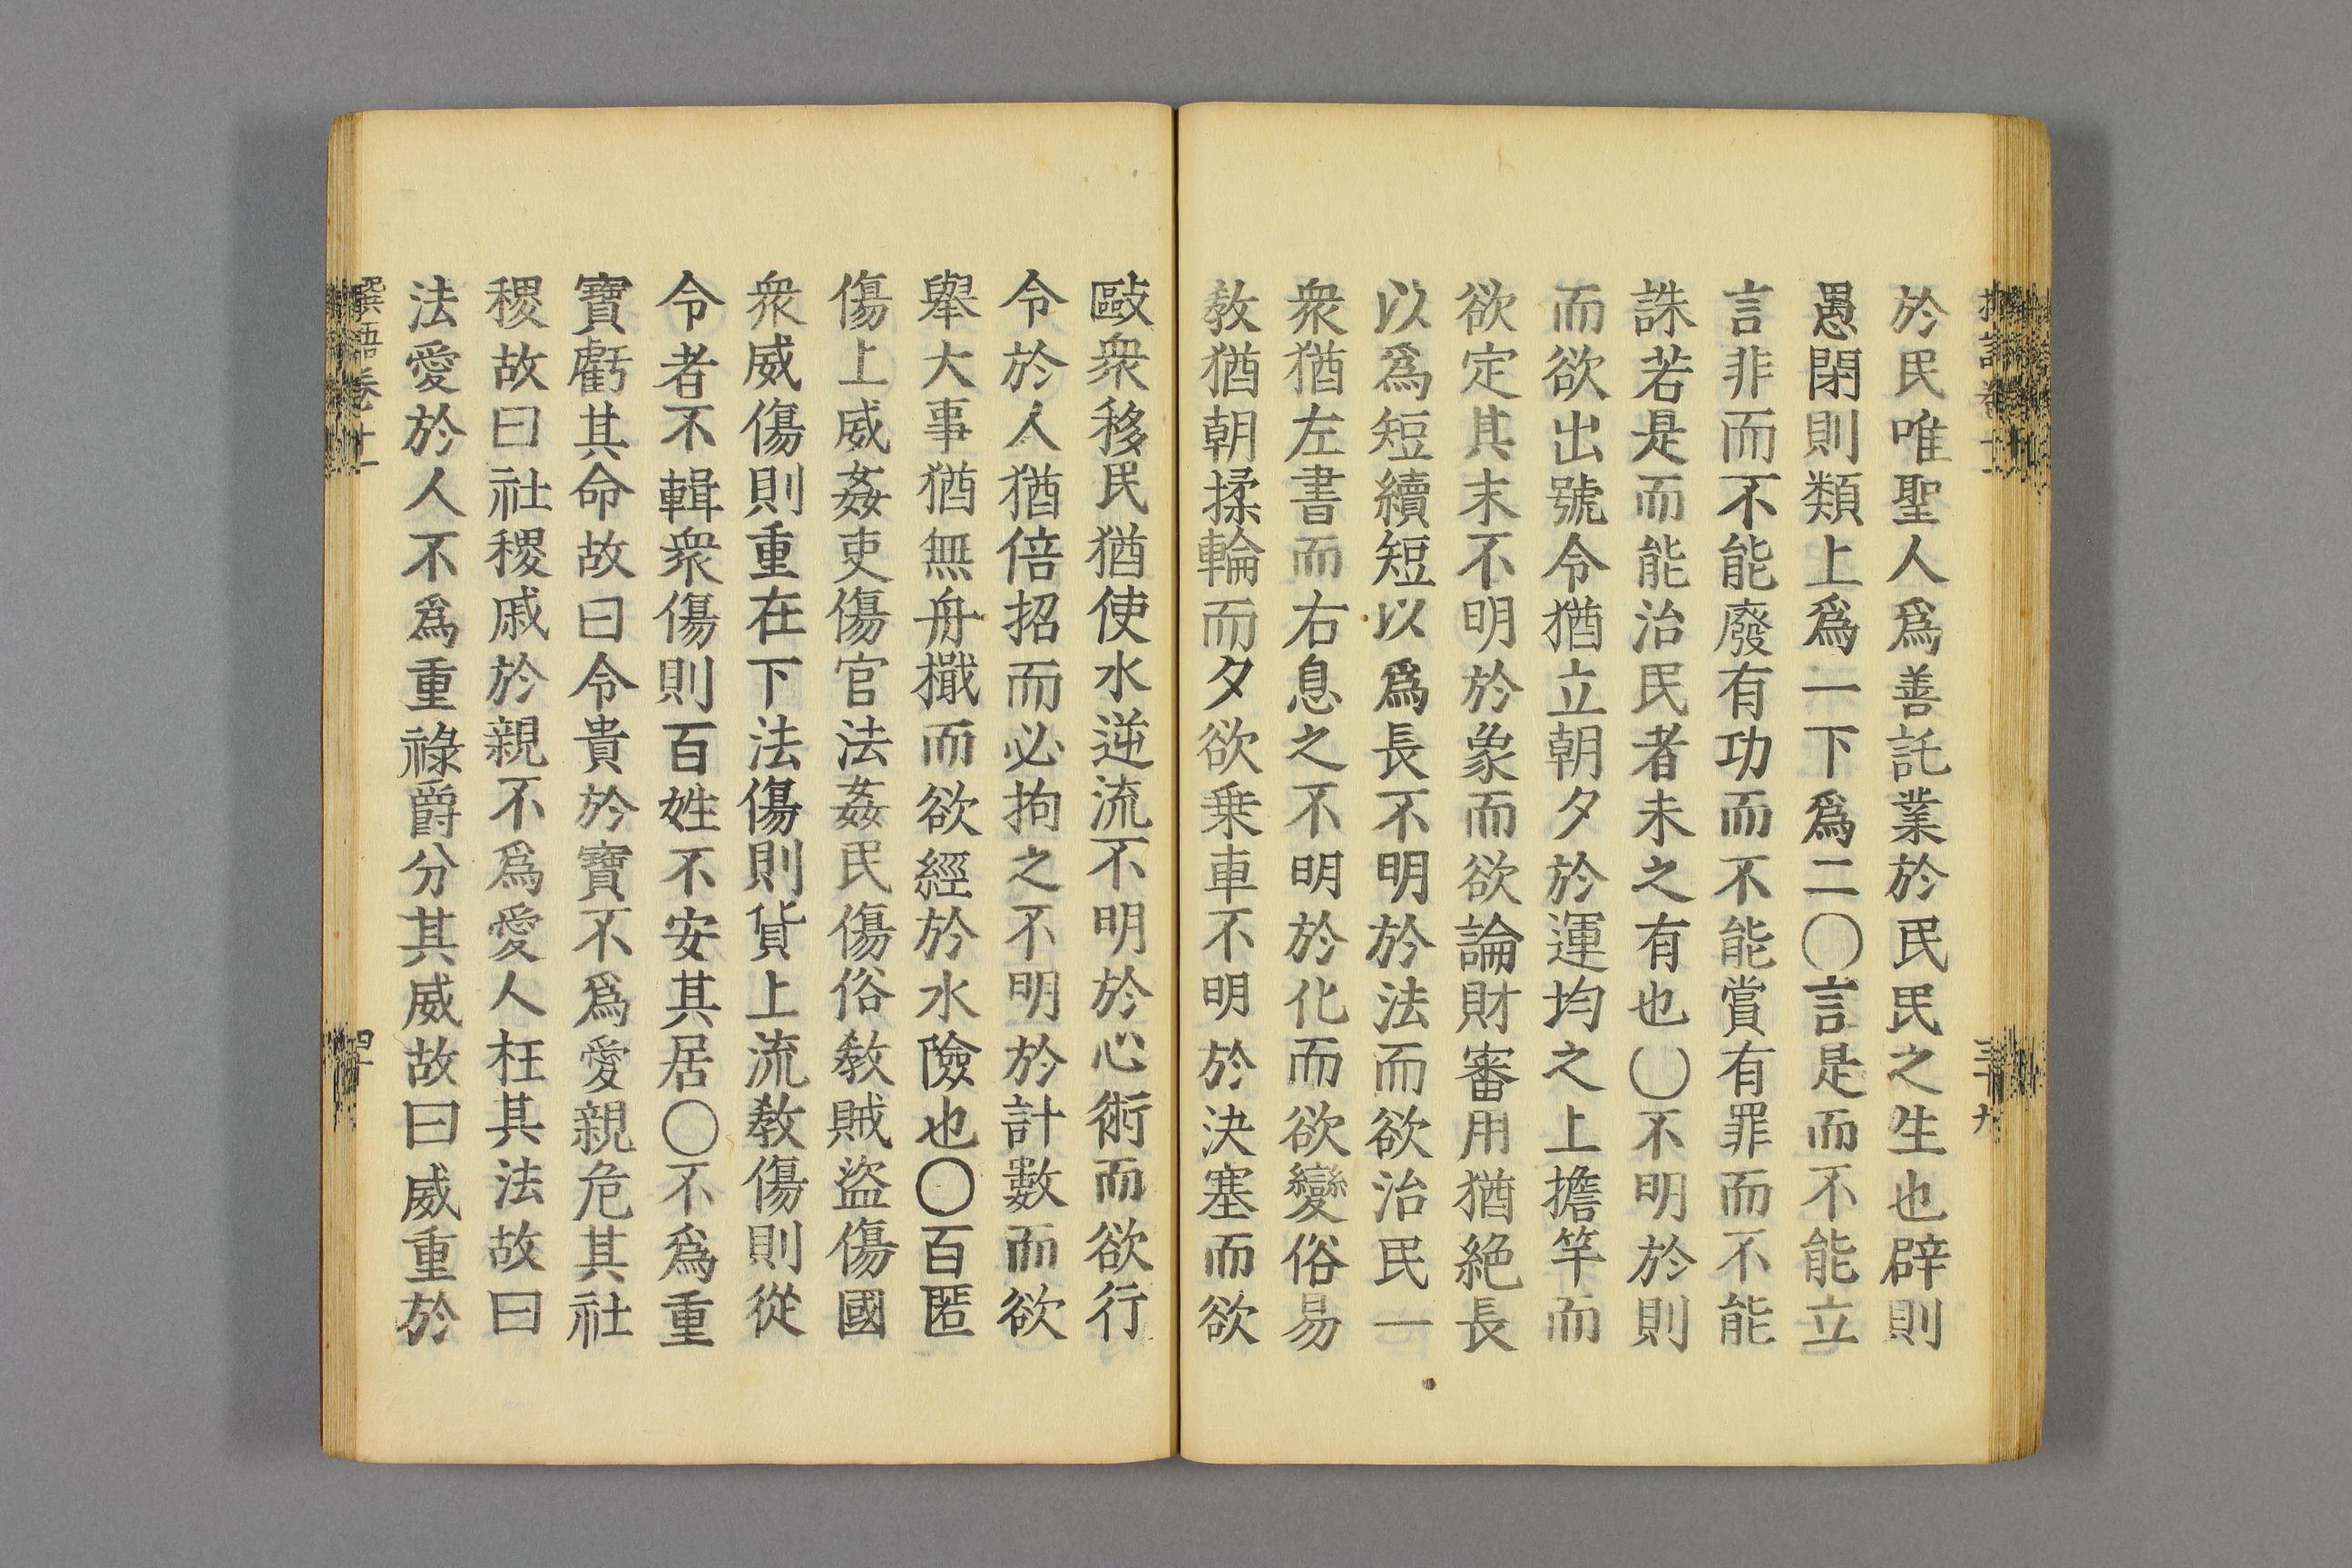 於民唯聖人爲善託業於民民之生也辟則
愚閉則類上爲一下爲二〇言是而不能立
言非而不能廢有功而不能賞有罪而不能
誅若是而能治民者未之有也〇不明於則
而欲出號令猶立朝夕於運均之上擔竿而
欲定其末不明於象而欲論財審用猶絕長
以爲短續短以爲長不明於法而欲治民一
衆猶左書而右息之不明於化而欲變俗易
敎猶朝揉輪而夕欲乗車不明於決塞而欲
毆衆移民猶使水逆流不明於心術而欲行
令於人猶倍招而必拘之不明於計數而欲
舉大事猶無舟檝而欲經於水險也〇百匿
傷上威姦吏傷官法姦民傷俗敎賊盜傷國
衆威傷則重在下法傷則貨上流敎傷則從
令者不輯衆傷則百姓不安其居〇不爲重
寶虧其命故曰令貴於寶不爲愛親危其社
稷故曰社稷戚於親不爲愛人枉其法故曰
法愛於人不爲重祿爵分其威故曰威重於